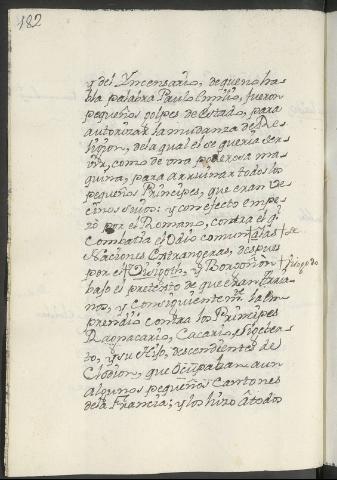 182
y del Yncensario, de que no ha-
bla palabra Paulo Emilio, fueron
pequeños golpes de Estado, para
autorizar la mudanza de Re-
lixion, de la qual el se queria ser-
vir, como de una poderosa ma-
quina, para arruinar todos los
pequeños Principes, que eran ve-
cinos suios: y con efecto empe-
zó por el Romano, contra el qe
Combatia el odio comun a las
Naciones Estrangeras, despues
por el Visigoth, y Borgoñon
bajo el pretexto de que eran Arria-
nos, y consiguientemte la em-
prendio contra los Principes
Ragnacario, Cacario, Sigeber-
to, y su Hijo, descendientes de
Clodion, que ocupaban aun
algunos pequeños Cantones
de la Francia; y los hizo á todos